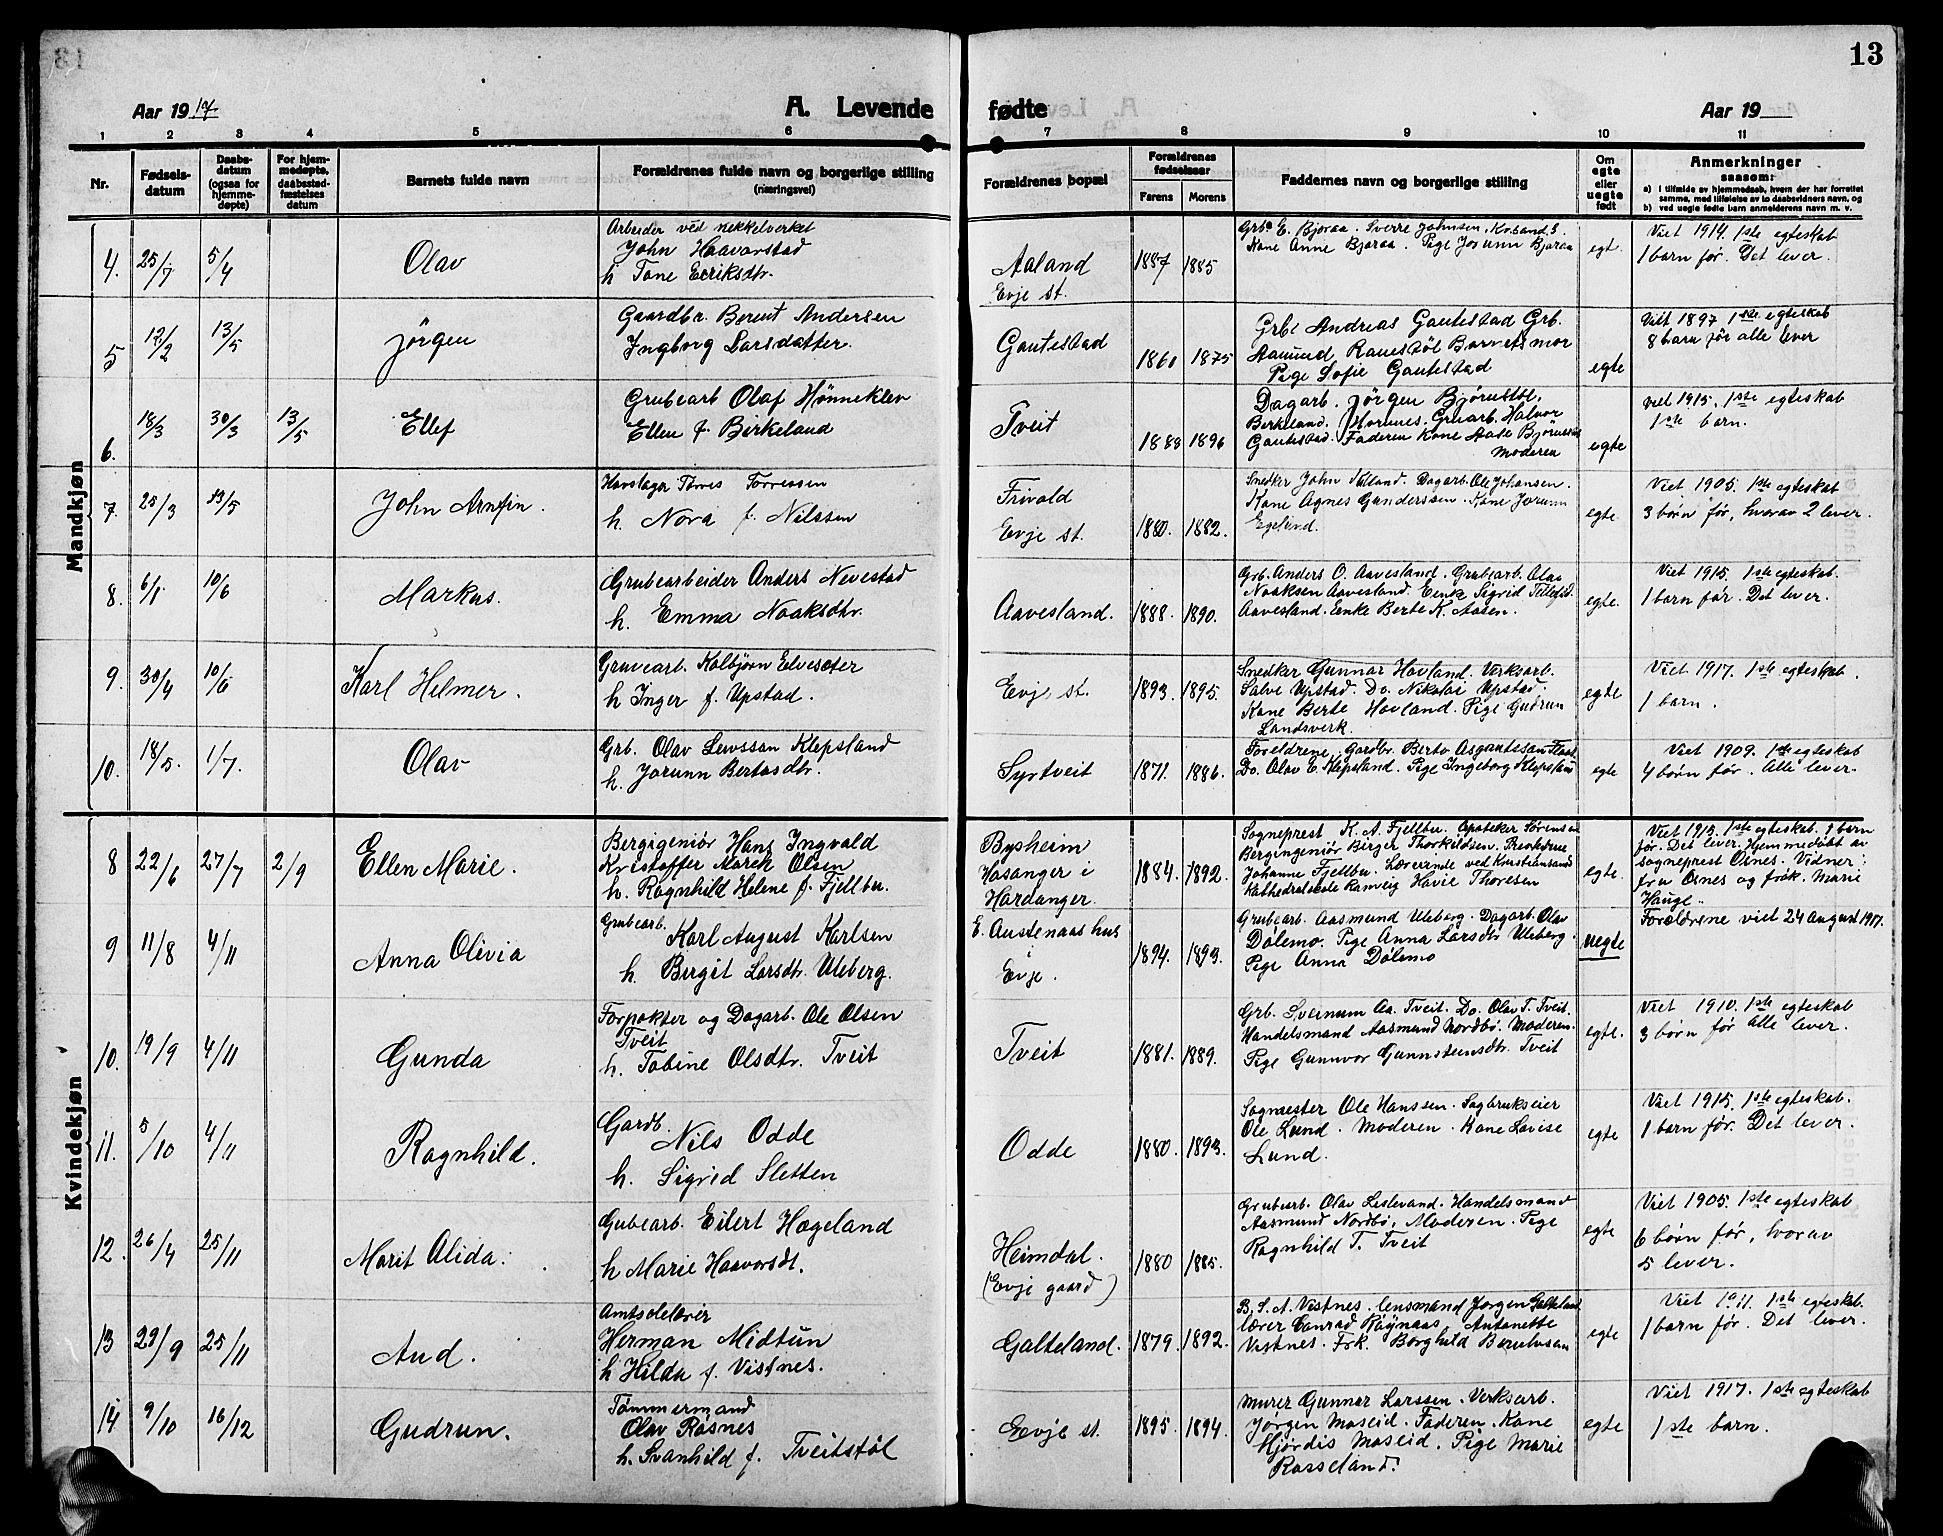 13
Aar 1917
A. Levende
fødte
Aar 19
1 2 3 4 5 6 7 8 9 10 11
Nr.
Fødsels-
datum
Daabs-
datum
(ogsaa for
hjemme-
døpte)
For hjem-
medøpte,
daabsstad-
fæstelses
datum
Barnets fulde navn
Forældrenes fulde navn og borgerlige stilling
(næringsvei)
Forældrenes bopæl
Forældrenes
fødselsaar
Farens Morens
Faddernes navn og borgerlige stilling
Om
egte
eller
uegte
født
Anmerkninger
saasom:
a) i tilfælde av hjemmedaab, hvem der har forrettet
samme, med tilføielse av to daabsvidners navn, og
b) ved uegte fødte barn anmelderens navn m. v.
Mandkjøn
4. 25/7 5/4
Olav
Arbeider ved nikkelverket
John Haavorstad
h Tone Eeriksdtr.
Aaland
Evje st.
1887 1885
Grb E. Bjoraa. Sverre Johnsen, Krsand S.
Kone Anne Bjoraa. Pige Jorunn Bjoraa
egt.
Viet 1914. 1ste egteskab
1 barn før. Det lever.
5 12/2 13/5
Jörgen
Gaardbr. Berent Andersen
Ingborg Larsdatter.
Gautestad
1860 1875
Grb. Andreas Gautestad Grb.
Aamund Ranestöl Barnets mor
Pige Sofie Gautestad
egte
Viet 1897 1ste egteskab
8 barn før alle lever
6. 18/3 30/3 13/5
Ellef
Grubearb Olaf Hönneklev
Ellen f. Birkeland
Tveit
1888 1896
Dagarb. Jörgen Björnstöl,
Birkeland, Hornnes. Gruarb. Halvor
Gautestad. Faderen Kone Aase Björnstöl
Moderen
egte
viet 1915. 1ste egteskab
1ste barn.
7. 25/3 13/5
John Arnfin.
Havslager Torres Torressen
h. Nora f. Nilssen
Frivold
Evje st.
1880. 1882.
Snedker John Dagarb. Ole Johansen.
Kone Agnes Gunderssen. Kone Jorunn
Egeland.
egte.
Viet. 1905. 1ste egteskab
3 børn før, hvorav 2 lever.
8. 6/1 10/6
Markus.
Grubearbeider Anders Nevestad
h. Emma Noaksdtr.
Aavesland.
1888. 1890.
Grb. Anders O. Aavesland. Grubearb. Olav
Noaksen Aavesland. Enke Sigrid Tellefsd.
Aavesland. Enke Berte K. Aasen.
egte.
Viet 1915. 1ste egteskab.
1 barn før. Det lever.
9. 30/4 10/6
Karl Helmer.
Grubearb. Kolbjørn Elveseter
h Inger f. Upstad.
Evje st.
1893. 1895.
Snedker Gunnar Hovland. Verksarb.
Salve Upstad. Do. Nikolai Upstad.
Kone Berte Hovland. Pige Gudrun
Landsverk.
egte
Viet 1917. 1ste egteskab.
1 barn.
10. 18/5. 1/7.
Olav
Grb. Olav Klepsland
h. Jorunn Bertosdtr.
Syrtveit
1871. 1886.
Forældrene. Gardbr. Berto
Do. Olav E. Klepsland. Pige Ingeborg Klepsland
egte
Viet 1909. 1ste egteskab
4 børn før. Alle lever.
Kvindekjøn
8 22/6 27/7 2/9
Ellen Marie.
Bergigeniör Hans Ingvald
Kristoffer Marek Olsen
h. Ragnhild Helene f. Fjellbu.
Bysheim
Hosanger i
Hardanger.
1884. 1892.
Sogneprest K. A. Fjellbu. Apoteker Sörensen
Bergingeniör Birger Thorkildsen. Prestefrue
Johanne Fjellbu. Lærerinde ved Kristiansand
Kathedralskole Ranveig Havie Thoresen
egte.
Viet 1915. 1ste egteskab. 1 barn
før. Det lever. Hjemmedöbt av
sogneprest Osnes. Vidner:
fru Osnes og frøk. Marie
Hauge.
9 11/8 4/11
Anna Olivia
Grubearb.
Karl August Karlsen
h. Bergit Larsdtr. Uleberg.
E. Austenaas hus
Evje.
1894. 1893.
Grubearb. Aasmund Uleberg. Dagarb. Olav
Dölemo. Pige Anna Larsdtr Uleberg.
Pige Anna Dölemo
uegte
Forældrene viet 24 august 1917.
10. 19/9 4/11
Gunda
Forpakter og Dagarb. Ole Olsen
Tveit
h. Tobine Olsdtr. Tveit
Tveit
1881. 1889.
Grb. Svennum Aa. Tveit. Do. Olav T. Tveit.
Handelsmand Aasmund Nordbö. Moderen.
Pige Gunnvor Gunnsteinsdtr. Tveit
egte.
Viet 1910. 1ste egteskab
3 børn før Alle lever.
11. 5/10 4/11
Ragnhild.
Gardb.
Nils Odde
h. Sigrid Sletten
Odde
1880. 1893.
Sagmester Ole Hanssen. Sagbrukseier
Ole Lund. Moderen. Kone Lovise
Lund.
egte
Viet 1915. 1ste egteskab.
1 barn før. Det lever.
12. 26/4 25/11
Marit Alida.
Gubearb. Eilert Hægeland
h Marie Haavorsdt.
Heimdal.
(Evje gaard)
1880 1885.
Grubearb. Olav Lislevand. Handelsmand
Aasmund Nordbö, Moderen. Pige
Ragnhild T. Tveit
egte
Viet 1905. 1ste egteskab
6 børn før, hvorav
5 lever.
13 29/9 25/11
Aud.
Amtsskolelærer
Herman Midtun
h Hilda f. Vistnes.
Galteland.
1879. 1892.
B. S. A. Vistnes. lensmand Jorgen Galteland
lærer Conrad Röynaas Antonette
Vistnes. Frk. Borghild
egte
Viet 1911. 1ste egteskab.
1 barn før. Det lever.
14 9/10 16/12
Gudrun.
Tömmermand
Olav Rösnes
h. Svanhild f. Tveitstöl
Evje st.
1895. 1894.
Murer Gunnar Larssen. Verksarb.
Jorgen Moseid. Faderen. Kone
Hjördis Moseid. Pige Marie
Rosseland.
egte
Viet 1917. 1ste egteskab
1ste barn.